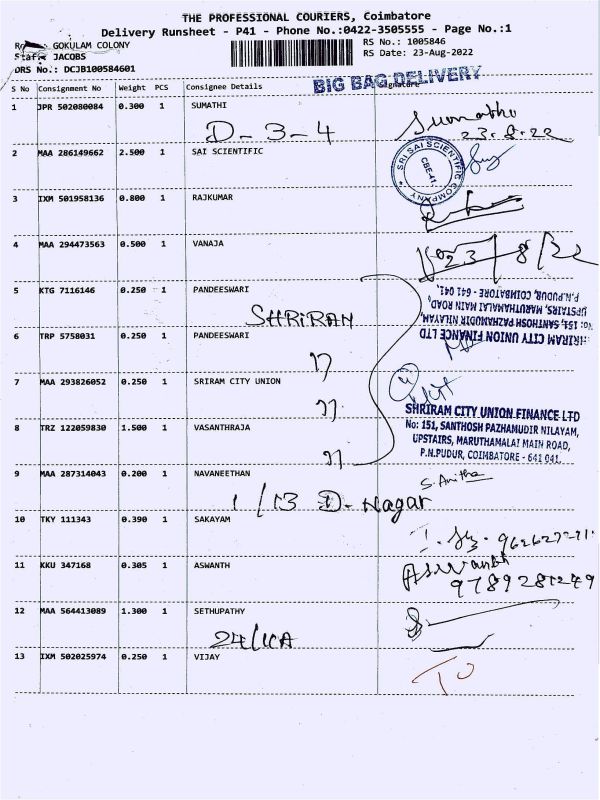 THE PROFESSIONAL COURIERS, Coimbatore
Delivery Runsheet - P41 - Phone No.:0422-3505555 - Page No.:1
GOKULAM COLONY
RS No.: 1005846
Staff: JACOBS
RS Date: 23-Aug-2022
DRS No.: DCJB100584601
BIG BAG DELIVERY
S No Consignment No Weight PCS Consignee Details Signature
1 JPR 502080084 0.300 1 SUMATHI
D-3-4
23.8.22
2 MAA 286149662 2.500 1 SAI SCIENTIFIC
SRI SAI SCIENTIFIC COMPANY
CBE-41.
3 IXM 501958136 0.800 1 RAJKUMAR
4 MAA 294473563 0.500 1 VANAJA
23/8/22
5 KTG 7116146 0.250 1 PANDEESWARI
SHRIRAM
6 TRP 5758031 0.250 1 PANDEESWARI
SHRIRAM CITY UNION FINANCE LTD
No: 151, SANTHOSH PAZHAMUDIR NILAYAM,
UPSTAIRS, MARUTHAMALAI MAIN ROAD,
P.N.PUDUR, COIMBATORE - 641 041.
7 MAA 293826052 0.250 1 SRIRAM CITY UNION
8 TRZ 122059830 1.500 1 VASANTHRAJA
SHRIRAM CITY UNION FINANCE LTD
No: 151, SANTHOSH PAZHAMUDIR NILAYAM,
UPSTAIRS, MARUTHAMALAI MAIN ROAD,
P.N.PUDUR, COIMBATORE - 641 041.
9 MAA 287314043 0.200 1 NAVANEETHAN
S. Anitha
1/13 D-Nagar
10 TKY 111343 0.390 1 SAKAYAM
11 KKU 347168 0.305 1 ASWANTH
Aswanth
9789281249
12 MAA 564413089 1.300 1 SETHUPATHY
24/
13 IXM 502025974 0.250 1 VIJAY
TO